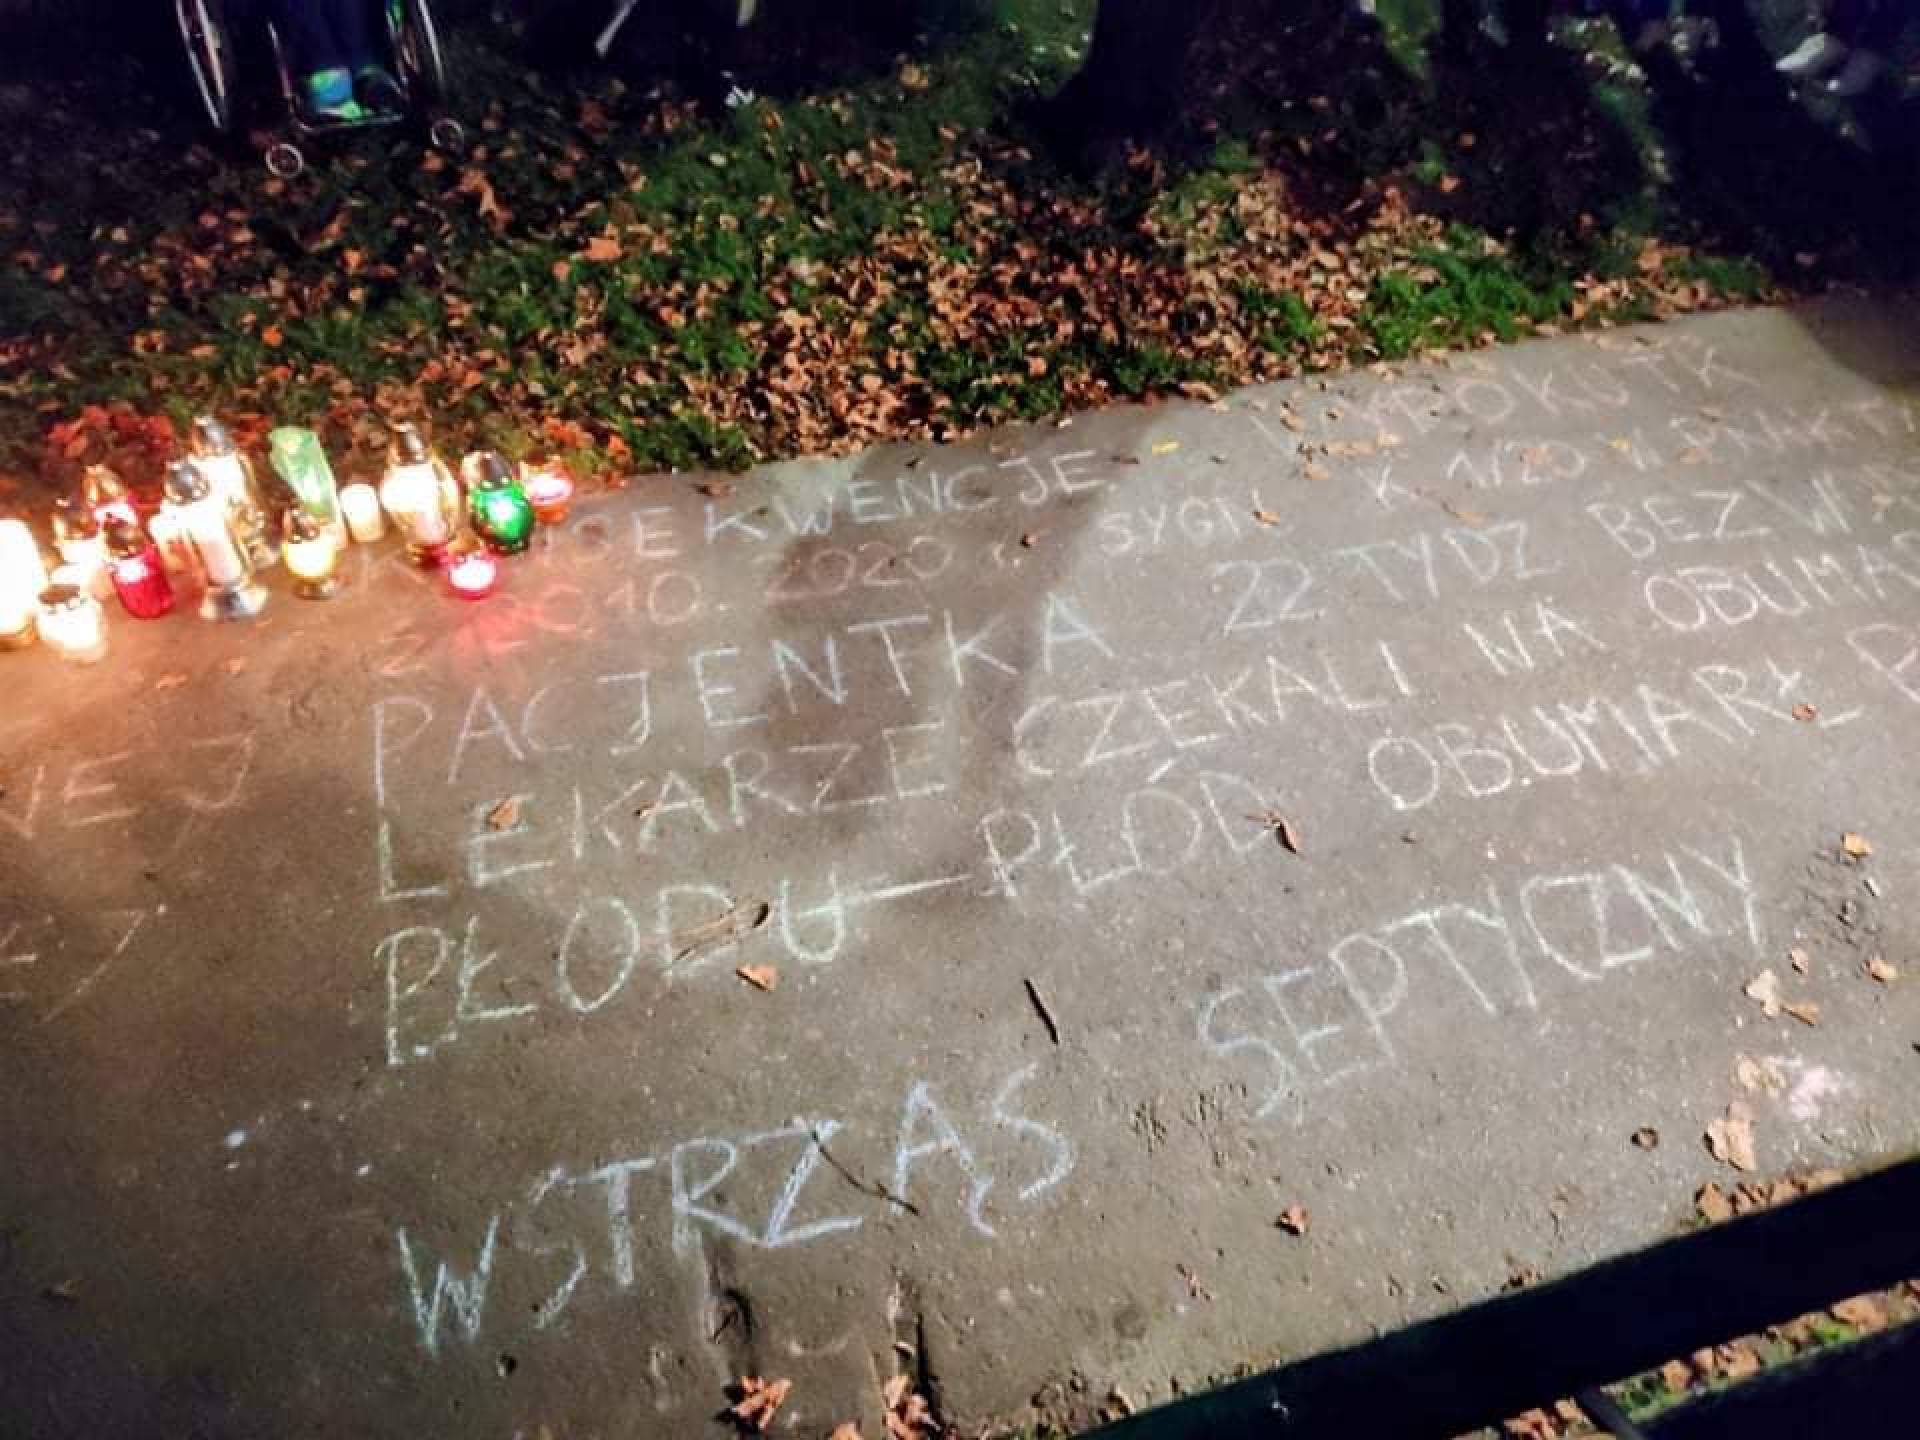 KONSEKWENCJE WYROKU TK
Z 22.10.2020 SYGN K 1/20 W PRAKTY
PACJENTKA 22 TYDZ BEZW
LEKARZE CZEKALI NA OBUMA
PŁODU – PŁÓD OBUMARŁ
WSTRZĄS SEPTYCZNY
NEJ